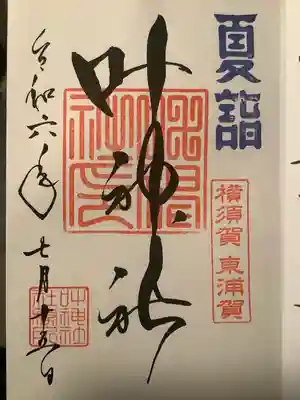 夏詣
横須賀 東浦賀
叶神社
令和六年 七月十五日